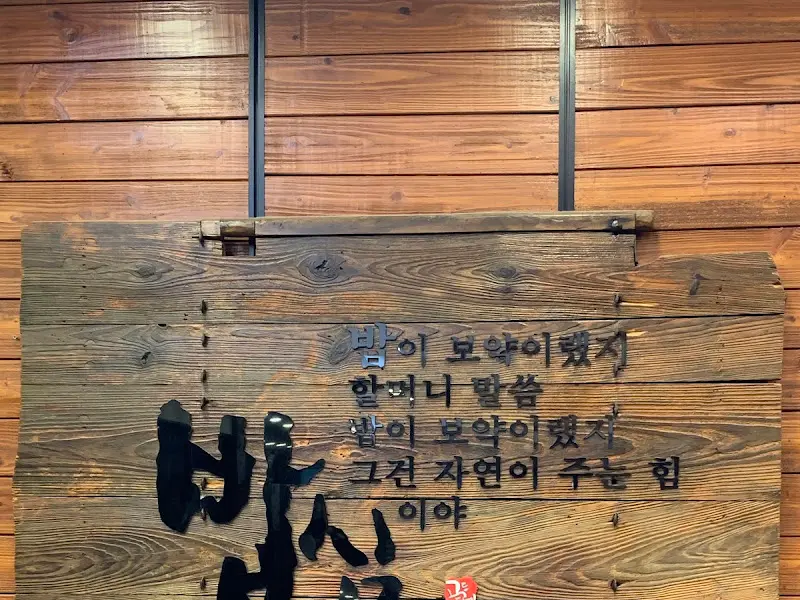 밥이 보약이랬지
할머니 말씀
밥이 보약이랬지
그건 자연이 주는 힘
이야